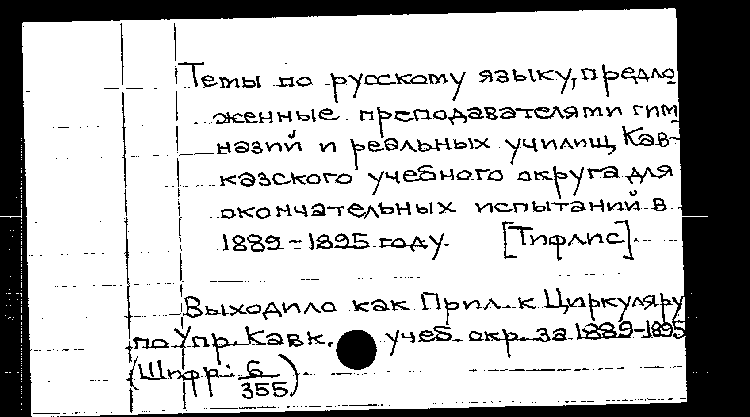 Темы по русскому языку, предло
женные преподавателями гим
назий и реальных училищ Кав-
казского учебного округа для
окончательных испытаний в
1889-1895 году. [Тифлис].
Выходило как Прил. к Циркуляру
по Упр. Кавк. учеб. окр. за 1889-1895
(Шифр: 6/355)